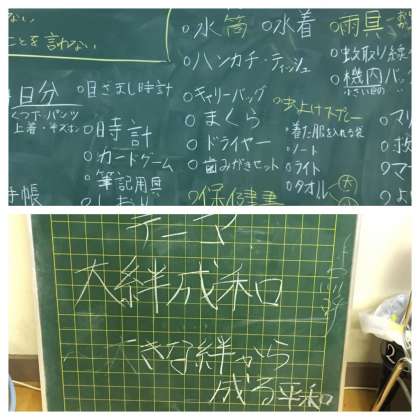 ない
ことを言わない
日分
くつ下・パンツ
上着・ズボン
手帳
○目さまし時計
○時計
○カードゲーム
○筆記用具
○しおり
○水筒
○ハンカチ・ティッシュ
○キャリーバッグ
○まくら
○ドライヤー
○歯みがきセット
○保健書
○水着
○虫よけスプレー
○着た服を入れる袋
○ノート
○ライト
○タオル
大
○雨具
○蚊取り線
○機内バッ
小さい
○マ
○救
○マ
テーマ
大絆成和
大きな絆から
成る平和